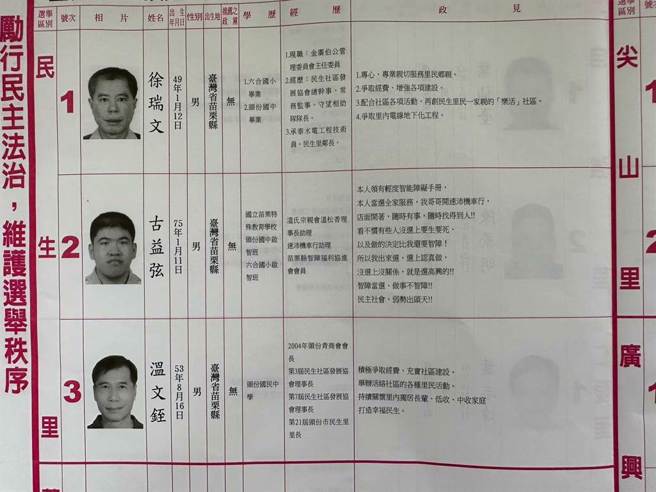 勵行民主法治，維護選舉秩序
選舉區別
號次
相片
姓名
出生年月日
性別
出生地
推薦之政黨
學歷
經歷
政見
民生里
1
徐瑞文
49年1月12日
男
臺灣省苗栗縣
無
1.六合國小
畢業
2.頭份國中
畢業
1.現職：金廣伯公管
理委員會主任委員
2.經歷：民生社區發
展協會總幹事、常
務監事、守望相助
隊隊長。
3.承泰水電工程技術
員。民生里鄰長。
1.專心、專業親切服務里民鄉親。
2.爭取經費，增強各項建設。
3.配合社區各項活動，再創民生里民一家親的「樂活」社區。
4.爭取里內電線地下化工程。
2
古益弦
75年1月11日
男
臺灣省苗栗縣
無
國立苗栗特
殊教育學校
頭份國中啟
智班
六合國小啟
智班
溫氏宗親會溫松香理
事長助理
速沛機車行助理
苗栗縣智障福利協進
會會員
本人領有輕度智能障礙手冊，
本人當選全家服務，我哥哥開速沛機車行，
店面開著、隨時有事，隨時找得到人!!
看不慣有些人沒選上要生要死，
以及做的決定比我還要智障!
所以我出來選，選上認真做，
沒選上沒關係，就是還高興的!!
智障當選、做事不智障!!
民主社會，弱勢出頭天!!
3
溫文銍
53年8月16日
男
臺灣省苗栗縣
無
頭份國民中
學
2004年頭份青商會會
長
第3屆民生社區發展協
會理事長
第7屆民生社區發展協
會理事長
第21屆頭份市民生里
里長
積極爭取經費、充實社區建設。
舉辦活絡社區的各種里民活動。
持續關懷里內獨居長輩、低收、中收家庭
打造幸福民生。
選舉區別
號次
尖山里
1
2
廣興
1